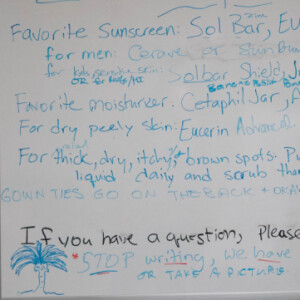 Favorite Sunscreen: Sol Bar, EU
zinc
for men: Cerave or Sun Bum
for kids
OR for body/
Solbar Shield, Ja
Favorite moisturizer: Cetaphil Jar, A
For dry, peely skin: Eucerin Advanced
For thick, dry, itchy brown spots: Pu
liquid daily and scrub tha
GOWN TIES GO ON THE BACK + OKAY
If you have a question, Please
*STOP writing, we have
OR TAKE A PICTURE.